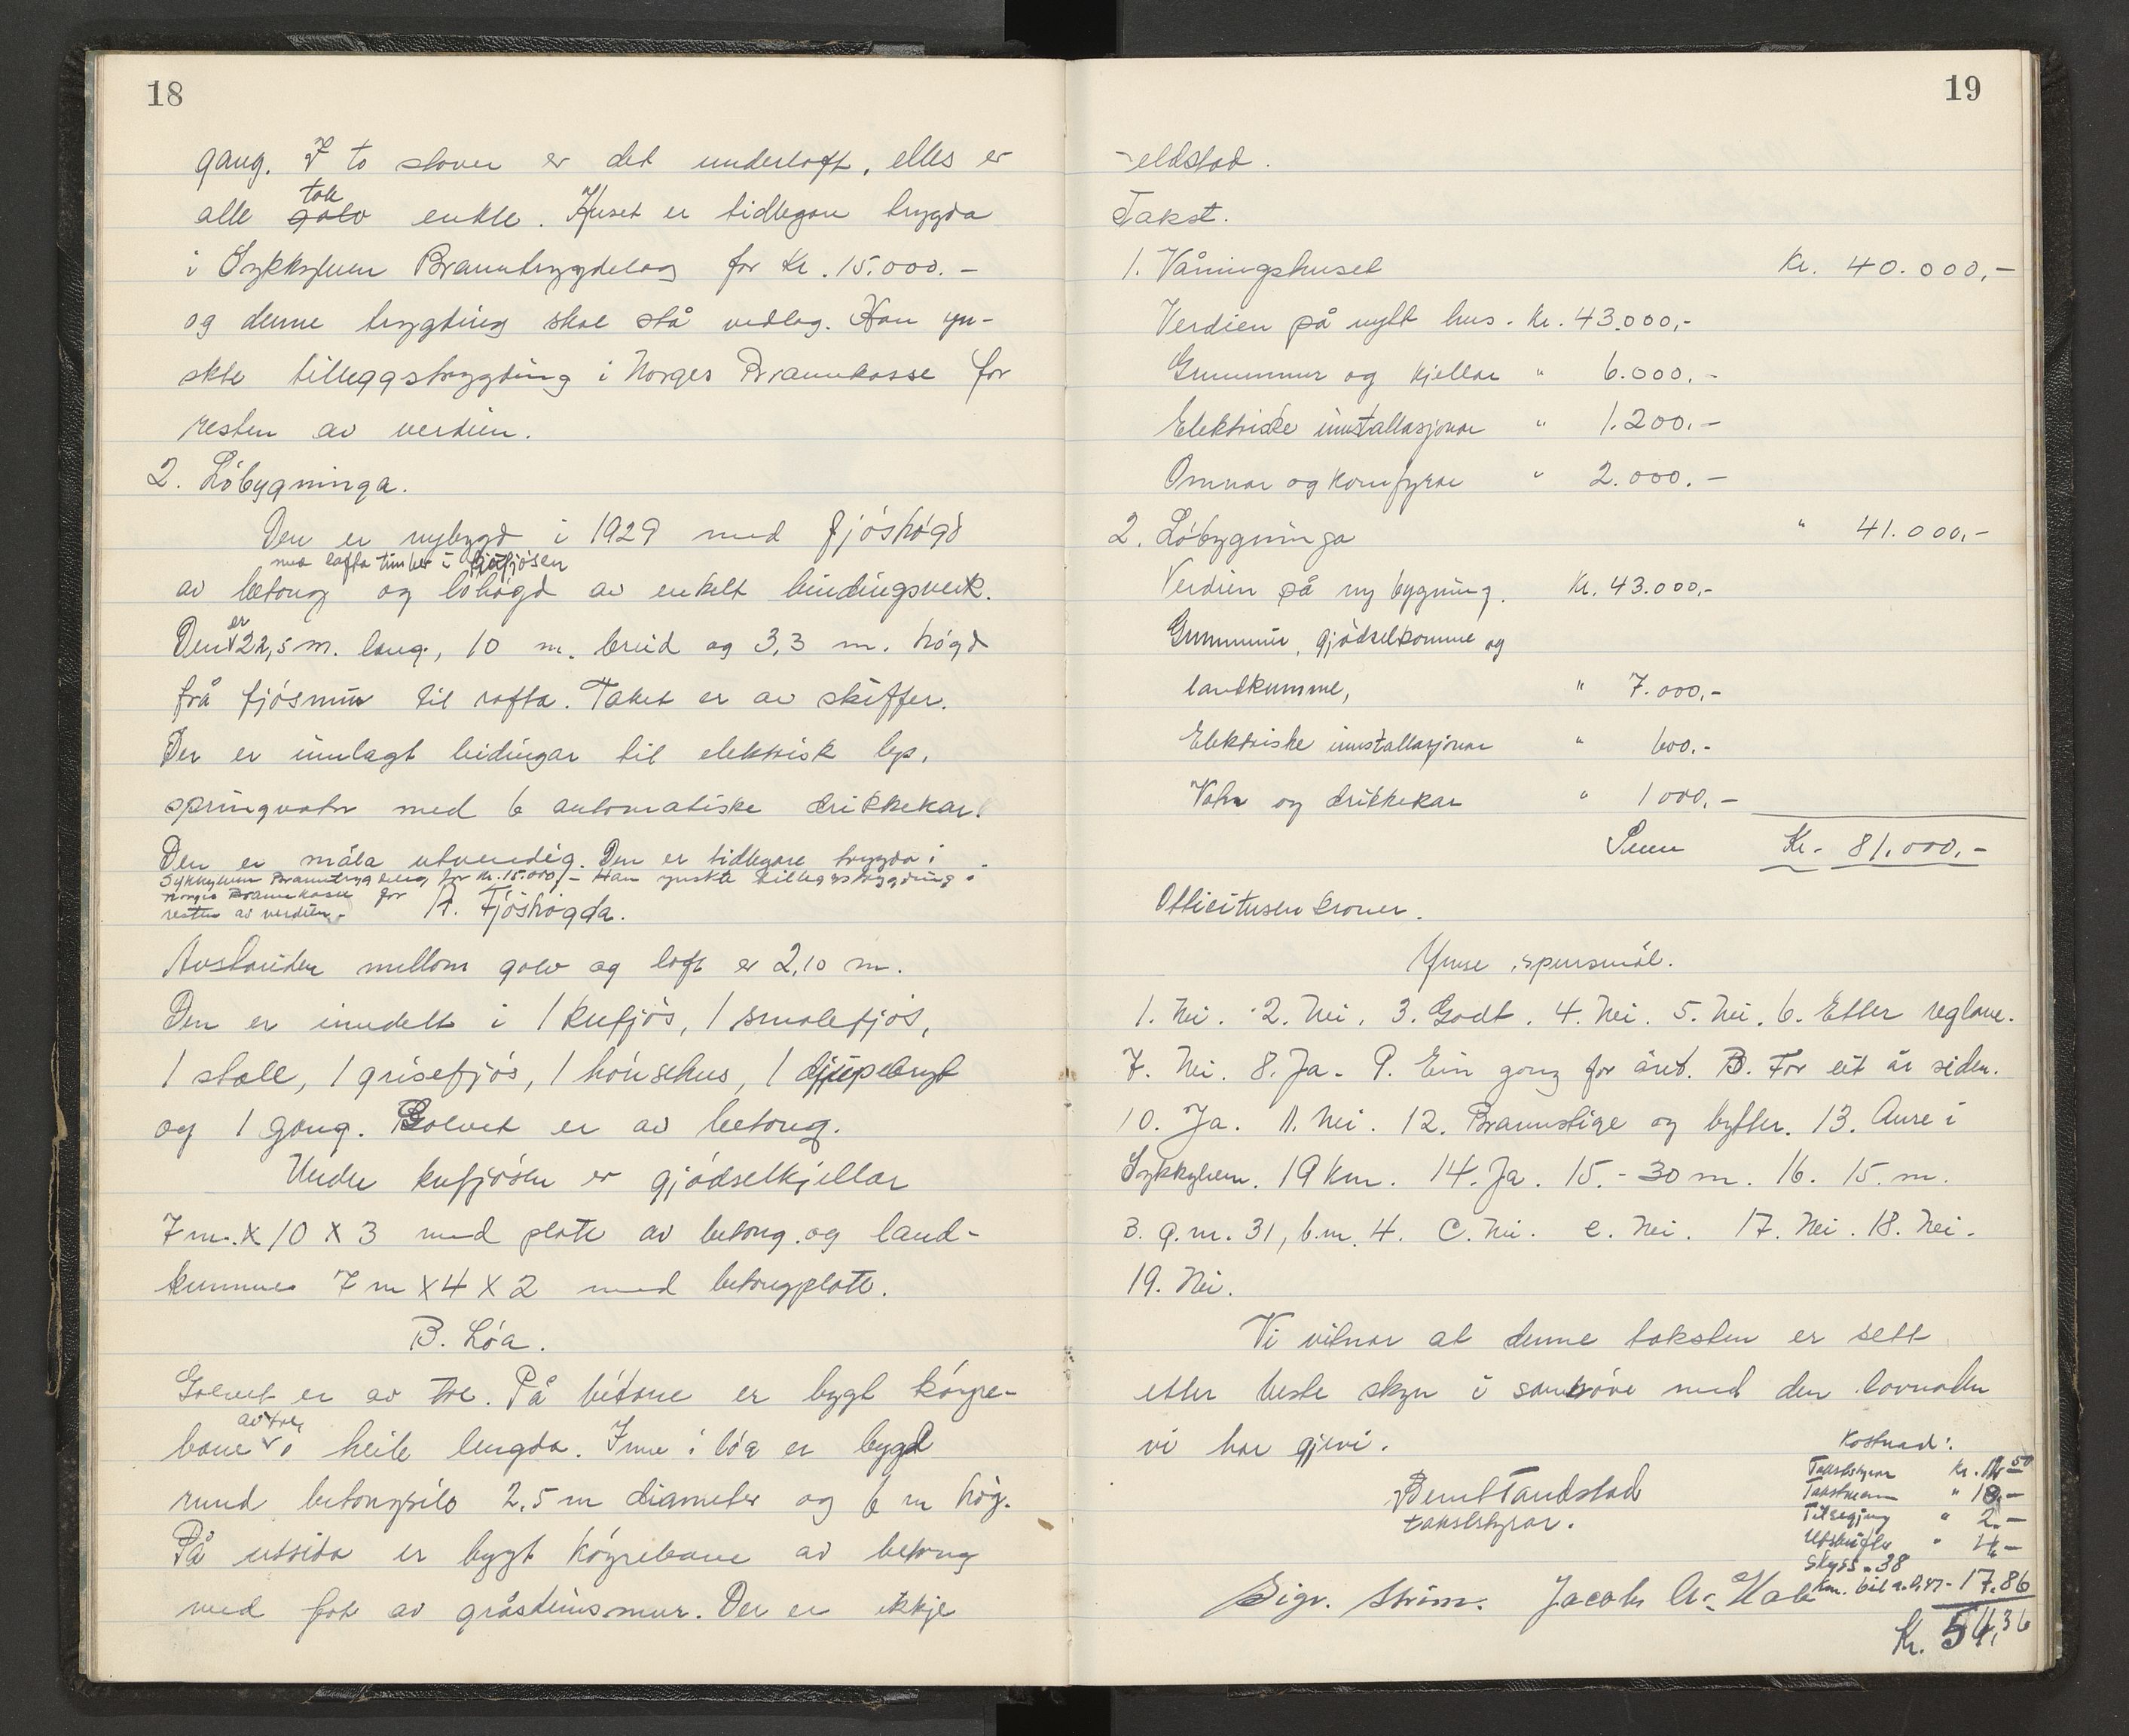 18
gang. I to stover er det underloft, elles er
alle golv tak enkle. Huset er tidlegare trygda
i Sykkylven Branntrygdelag for kr. 15.000.-
og denne trygding skal stå vedlag. Han yn-
skte tilleggstrygding i Norges Brannkasse for
resten av verdien.
2. Löbygninga.
Den er nybygd i 1929 med fjöshögd
med lafta timber i fjösen
av betong og löhögd av enkelt bindingsverk.
Den er 22,5 m. lang, 10 m. breid og 3,3 m. högd
frå fjösmur til rafta. Taket er av skiffer.
Der er innlagt leidingar til elektrisk lys,
springvatn med 6 automatiske drikkekar.
Den er måla utvendig. Den er tidlegare trygda i
Sykkylven Branntrygdelag for kr. 15.000,- Han ynskte tilleggstrygding i
Norges Brannkasse for
resten av verdien.
A. Fjöshögda.
Avstanden mellom golv og loft er 2,10 m.
Den er inndelt i 1 kufjös, 1 smalefjös,
1 stall, 1 grisefjös, 1 hönsehus, 1 djupebygt
og 1 gang. Golvet er av betong.
Under kufjösen er gjödselkjellar
7 m. x 10 x 3 med plate av betong og land-
kumme 7 m x 4 x 2 med betongplate.
B. Löa.
Golvet er av tre. På bitane er bygt köyre-
bane av tre i heile lengda. Inne i löa er bygd
rund betongsilo 2,5 m diameter og 6 m hög.
På utsida er bygt köyrebane av betong
med fot av gråsteinsmur. Der er ikkje
19
eldstad.
Takst.
1. Våningshuset Kr. 40.000,-
Verdien på nytt hus. Kr. 43.000,-
Grunnmur og kjellar " 6.000,-
Elektriske innstallasjonar " 1.200,-
Omnar og komfyrar " 2.000,-
2. Löbygninga " 41.000,-
Verdien på ny bygning. Kr. 43.000,-
Grunnmur, gjödselkomme og
landkumme, " 7.000,-
Elektriske innstallasjonar " 600,-
Vatn og drikkekar " 1000,-
Sum Kr. 81.000,-
Ottieitusen kroner.
Ymse spursmål.
1. Nei. 2. Nei. 3. Godt. 4. Nei. 5. Nei. 6. Etter reglane.
7. Nei. 8. Ja. 9. Ein gong for året. B. For eit år siden.
10. Ja. 11. Nei. 12. Brannstige og bytter. 13. Aure i
Sykkylven. 19 km. 14. Ja. 15. - 30 m. 16. 15. m.
B. a. m. 31, b. m. 4. C. Nei. e. Nei. 17. Nei. 18. Nei.
19. Nei.
Vi vitnar at denne taksten er sett
etter beste skyn i samhöve med den lovnaden
vi har gjevi.
Bernt Tandstad
takststyrar.
Sigv. Ström. Jacob A. Hole
Kostnad:
Takststyrar Kr. 12.50
Takstmenn " 18,-
Tilseging " 2,-
Utskrifter " 4,-
Skyss - 38
km. bil a 0,47 - 17,86
Kr. 54,36